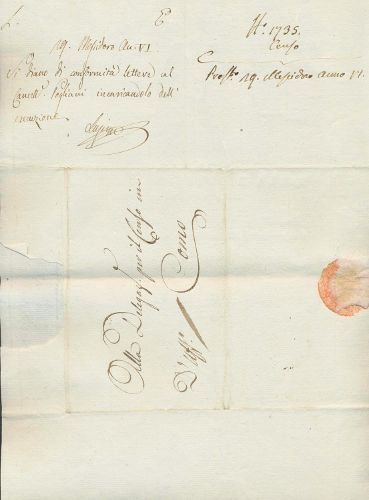 L. E
19. Messidoro An. VI.
Si dirame di conformità lettera al
Cancell.e Pagliari incaricandolo dell'
esecuzione.
N.o 1735.
Censo
C
Prod.to 19. Messidoro Anno VI.
Alla Delegaz.e per il Censo in
D'Uff.o Como